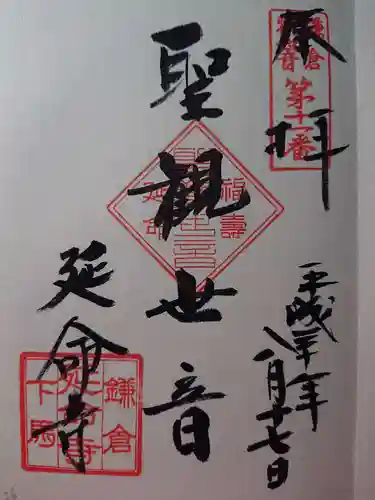 奉拝
鎌倉
観音
第十一番
聖観世音
福壽
延命
延命寺
鎌倉
延命寺
下馬
平成二十年
八月十七日